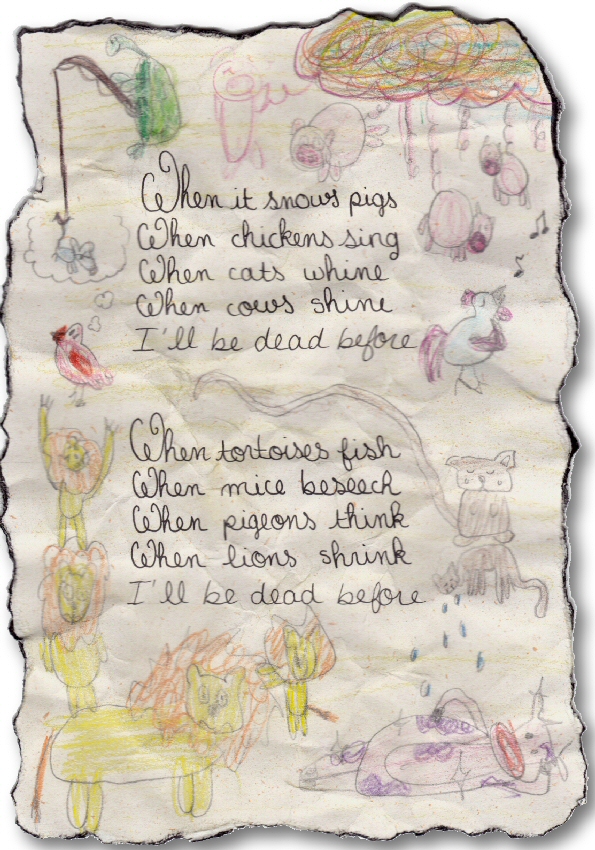 When it snows pigs
When chickens sing
When cats whine
When cows shine
I'll be dead before
When tortoises fish
When mice beseech
When pigeons think
When lions shrink
I'll be dead before